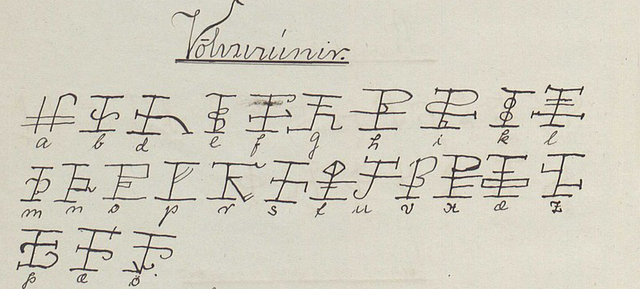 Völvurúnir.
a b d e f g h i k l
m n o p r s t u v x æ z
þ æ ö.